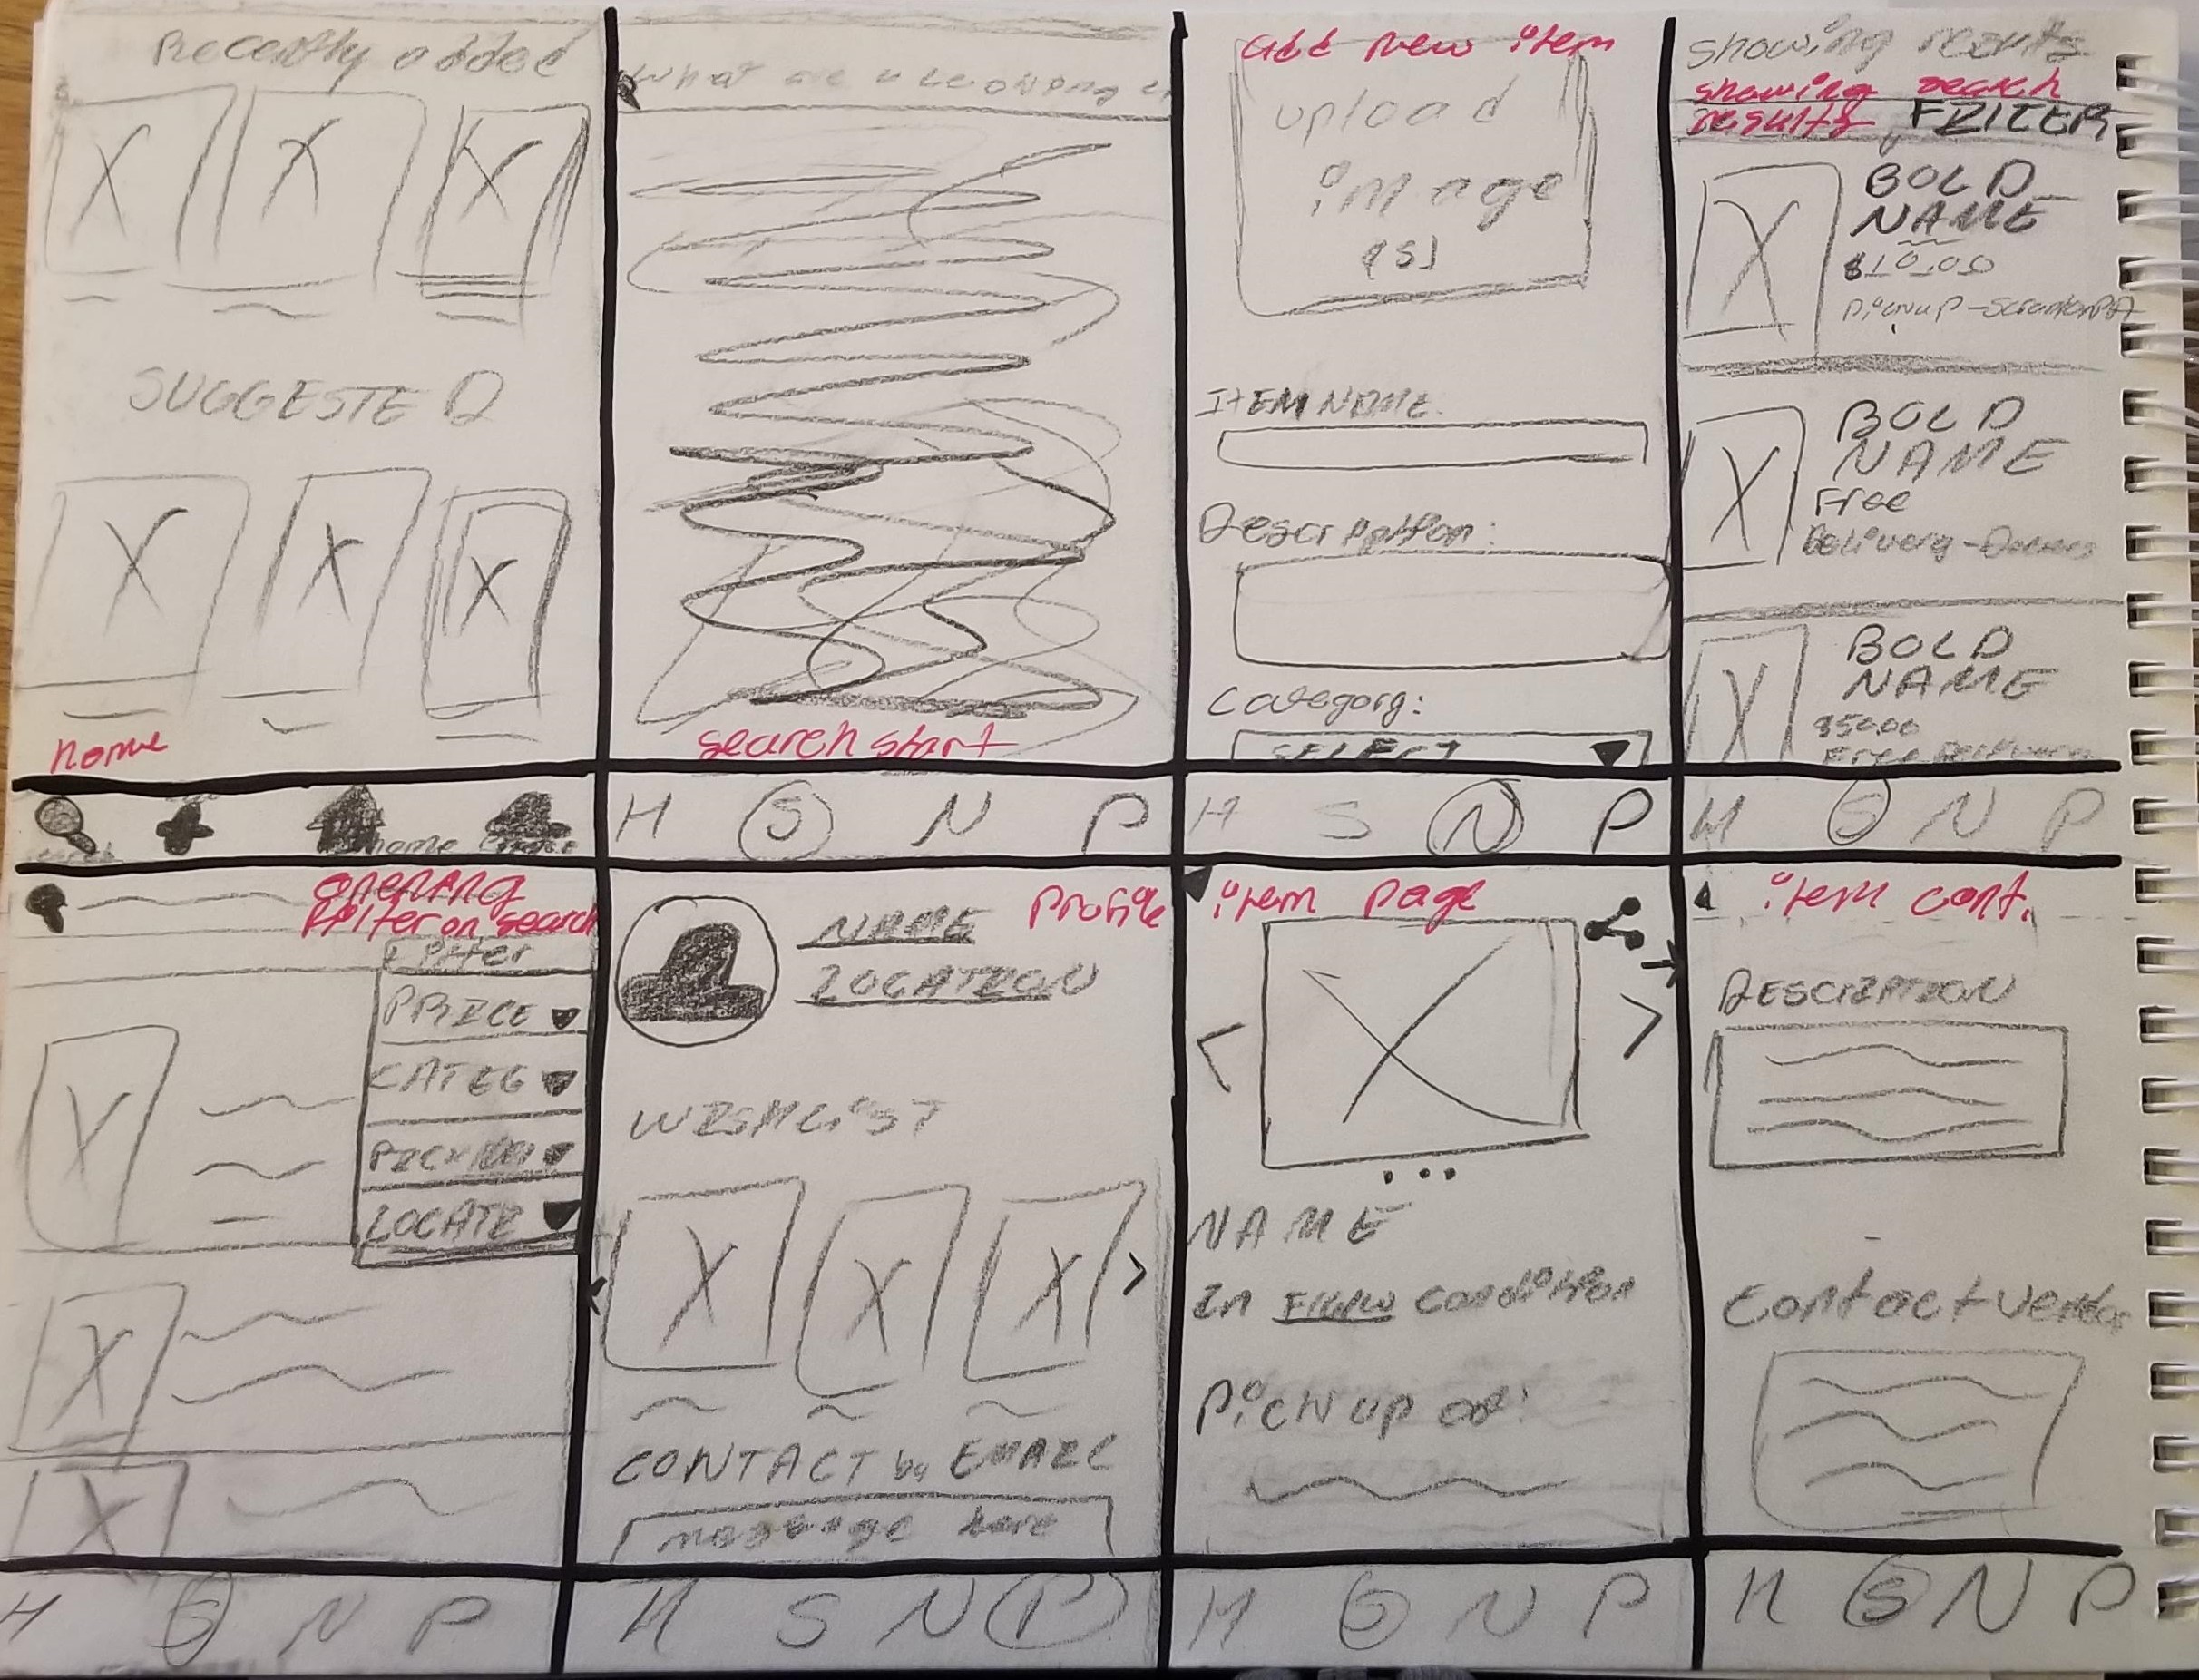 Recently added
SUGGESTED
home
search
home
What are u looking
search start
H S N P
add new item
upload
image
(s)
ITEM NAME
Description:
Category:
SELECT
H S N P
showing results
showing search
results
FILTER
BOLD
NAME
$10.00
Pickup - Scranton PA
BOLD
NAME
Free
Delivery -
BOLD
NAME
Free Delivery
H S N P
opening
filter on search
Filter
PRICE
CATEG
LOCATE
H S N P
Profile
NAME
LOCATION
WISHLIST
CONTACT by EMAIL
message here
H S N P
item page
NAME
In condition
Pick up at:
H S N P
item cont.
DESCRIPTION
Contact vendor
H S N P